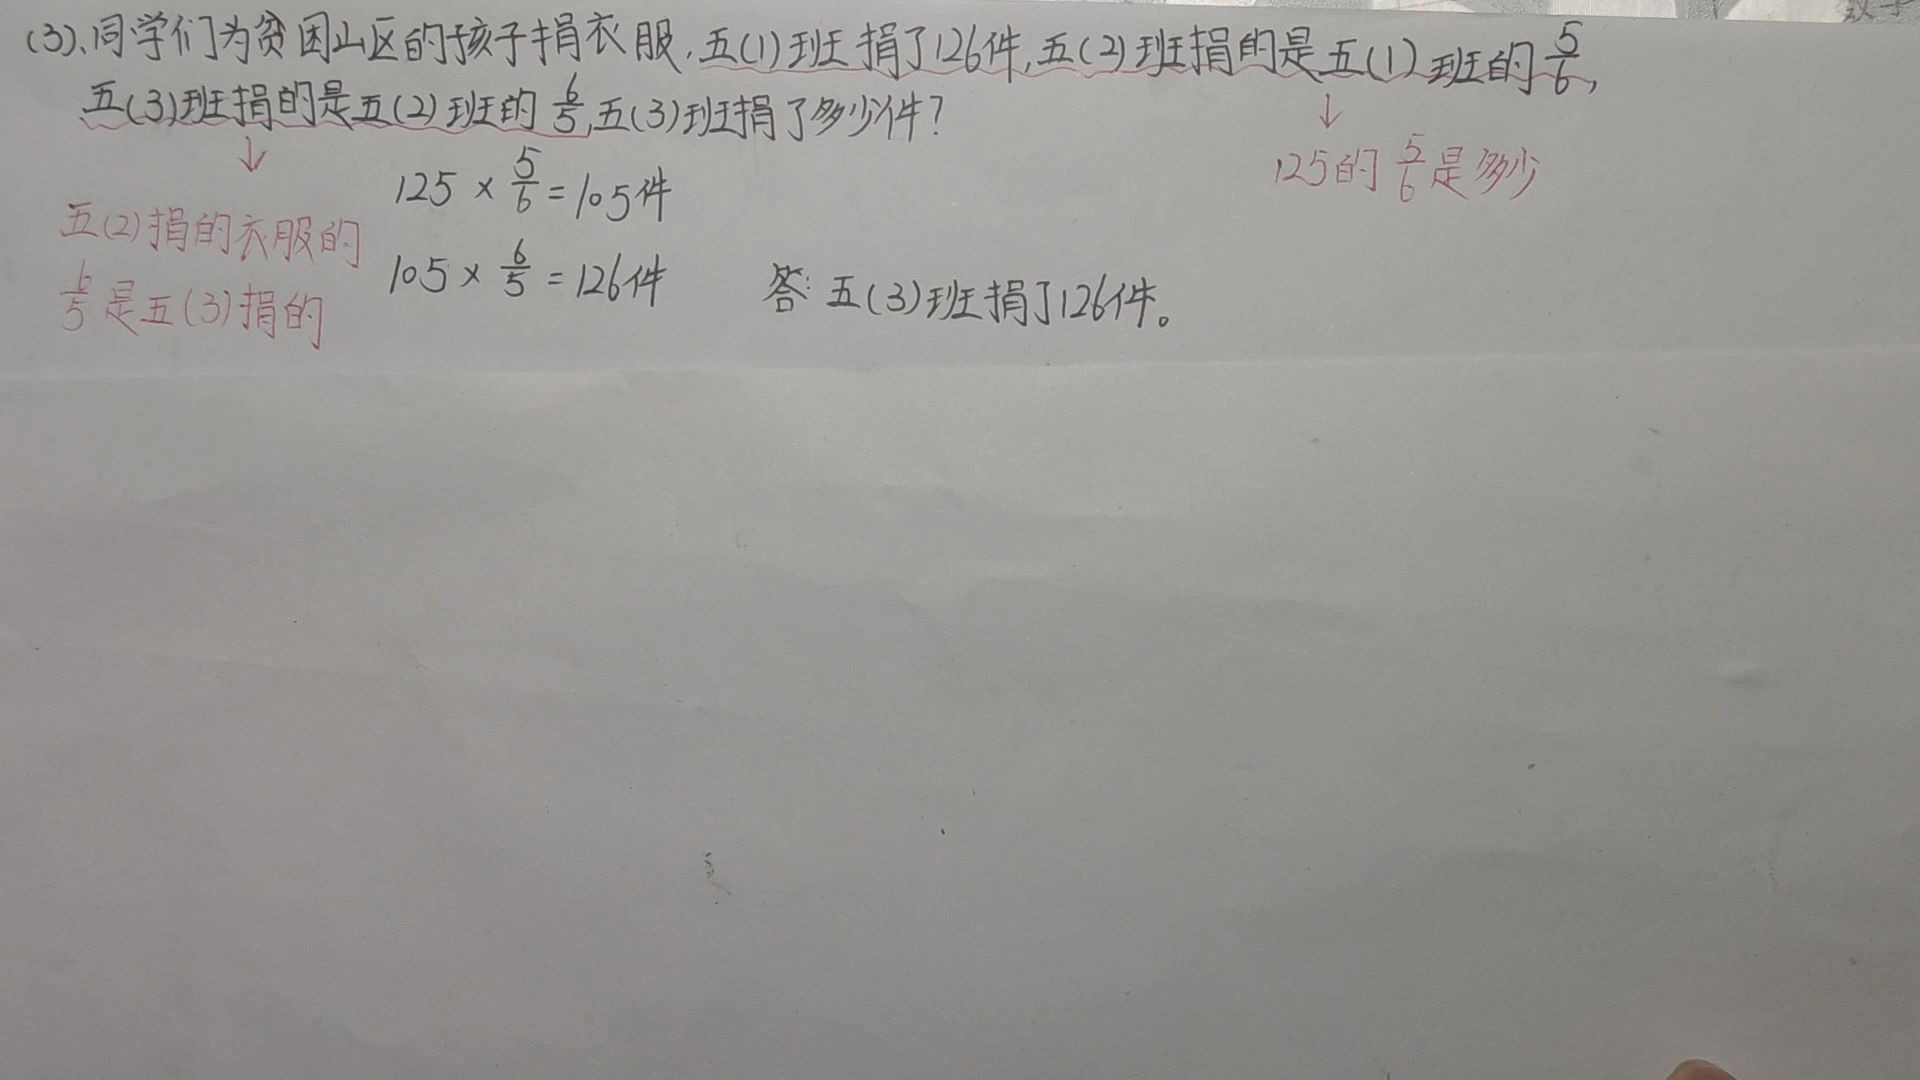 (3)、同学们为贫困山区的孩子捐衣服.五(1)班捐了126件,五(2)班捐的是五(1)班的5/6,
五(3)班捐的是五(2)班的6/5,五(3)班捐了多少件?
125的5/6是多少
125×5/6=105件
五(2)捐的衣服的
6/5是五(3)捐的
105×6/5=126件
答:五(3)班捐了126件。